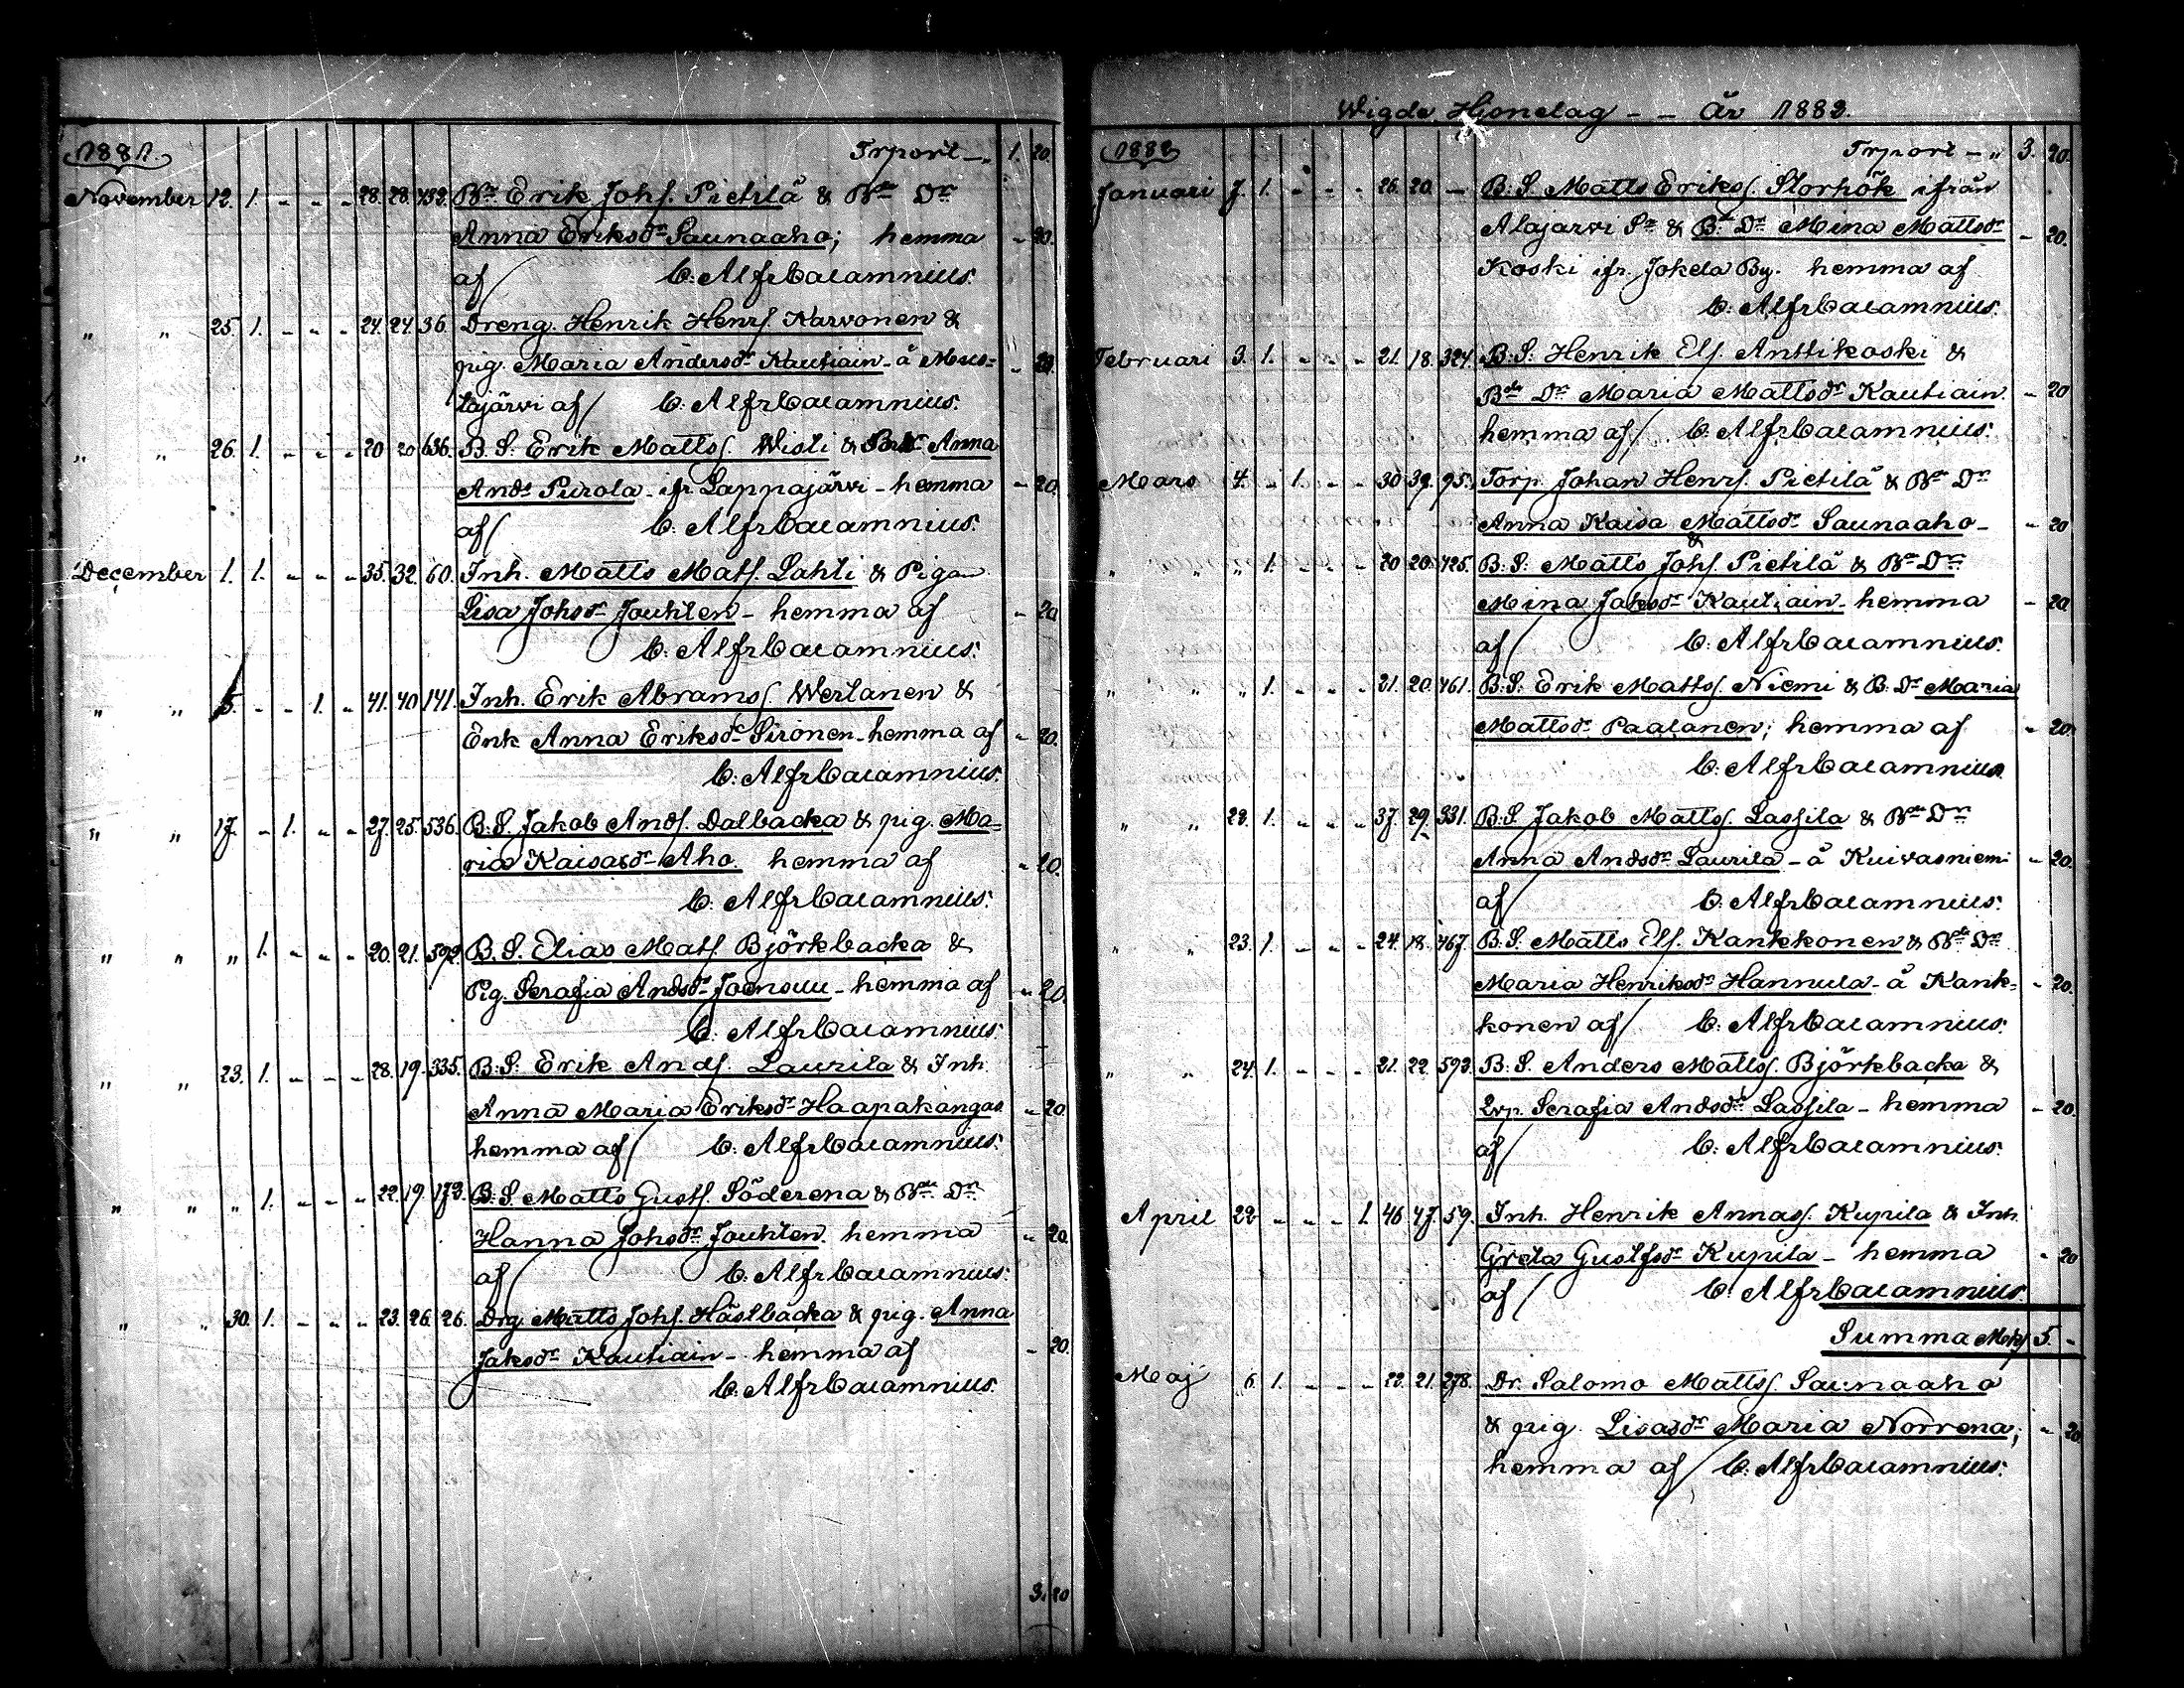 1881. Trport - „ 1. 20.
November 12. 1. „ „ „ 28. 28. 732. Bde Erik Johs. Pietilä & Bde Dr
Anna Eriksdr Saunaaho; hemma „ 20.
af/ C: AlfrCalamnius.
„ „ 25. 1. „ „ „ 24. 24. 36. Dreng. Henrik Henrs. Karvonen &
pig. Maria Andersdr Kautiain - å Mus= „ 20.
tajärvi af/ C: AlfrCalamnius.
„ „ 26. 1. „ „ „ 20 20 636. B. S. Erik Matts. Wisti & Anna
Ands Purola - ifr Lappajärvi - hemma „ 20.
af/ C: AlfrCalamnius.
December 1. 1. „ „ „ 35. 32. 60. Inh. Matts Mats. Lahti & Pigan
Lisa Johsdr Jouhten - hemma af „ 20
C: AlfrCalamnius.
„ „ 5. „ „ 1. „ 41. 40 141. Inh. Erik Abrams. Wertanen &
Enk Anna Eriksdr Sironen - hemma af „ 20.
C: AlfrCalamnius.
„ „ 17. „ 1. „ „ 27. 25. 536. B. S. Jakob Ands. Dalbacka & pig. Ma=
ria Kaisasdr Aho. hemma af „ 20.
C: AlfrCalamnius.
„ „ „ 1. „ „ „ 20. 21. 592. B. S. Elias Mats. Björkbacka &
Pig. Serafia Andsdr Joensuu - hemma af „ 20.
C: AlfrCalamnius.
„ „ 23. 1. „ „ „ 28. 19. 335. B: S: Erik Ands. Laurila & Inh.
Anna Maria Eriksdr Haapakangas „ 20
hemma af/ C: AlfrCalamnius.
„ „ „ 1. „ „ „ 22. 19. 173. B: S Matts Gusts. Söderena & Bde Dr
Hanna Johsdr Jouhten. hemma „ 20.
af/ C: AlfrCalamnius.
„ „ 30. 1. „ „ „ 23. 26. 26. Drg Matts Johs. Hästbacka & pig. Anna
Jaksdr Kautiain - hemma af „ 20.
C: AlfrCalamnius.
3. 20
Wigde Hjonelag - - År 1882.
1882 Trport - „ 3. 20.
Januari 7. 1. „ „ „ 26. 20. - B: S. Matts Eriks. Storhök ifrån
Alajärvi Sn & B: Dr Mina Mattsdr „ 20.
Koski ifr. Jokela By. hemma af
C: AlfrCalamnius.
Februari 3. 1. „ „ „ 21. 18. 324. B: S: Henrik Els. Anttikoski &
Bde Dr Maria Mattsdr Kautiain. „ 20
hemma af/ C: AlfrCalamnius.
Mars 4. „ 1. „ „ 30 39. 95. Torp. Johan Henrs. Pietilä & Bde Dr
Anna Kaisa Mattsdr Saunaaho - „ 20
„ „ „ 1. „ „ „ 20 20. 725. B: S: Matts Johs. Pietilä & Bde Dr
Mina Jaksdr Kautiain - hemma „ 20.
af/ C: AlfrCalamnius.
„ „ „ 1. „ „ „ 21. 20. 761. B: S: Erik Matts. Niemi & B: Dr Maria
Mattsdr Paalanen; hemma af „ 20.
C: AlfrCalamnius.
„ „ 22. 1. „ „ „ 37. 29. 331. B: S Jakob Matts. Lassila & Bde Dr
Anna Andsdr Laurila - å Kuivasniemi „ 20.
af/ C: AlfrCalamnius.
„ „ 23. 1. „ „ „ 24. 18. 767. B: S. Matts Els. Kankkonen & Bde Dr
Maria Henriksdr Hannula - å Kank= „ 20.
konen af/ C: AlfrCalamnius.
„ „ 24. 1. „ „ „ 21. 22 593. B: S. Anders Matts. Björkbacka &
Serafia Andsdr Lassila - hemma „ 20.
af/ C: AlfrCalamnius.
April 22 „ „ „ 1. 46 47. 59. Inh. Henrik Annas. Kupila & Inh.
Greta Gustfsdr Kupila - hemma „ 20
af/ C: AlfrCalamnius.
Summa Mk 5. -
Maj 6. 1. „ „ „ 22. 21. 278. Dr. Salomo Matts. Saunaaho
& pig. Lisasdr Maria Norrena; „ 20
hemma af/ C: AlfrCalamnius.